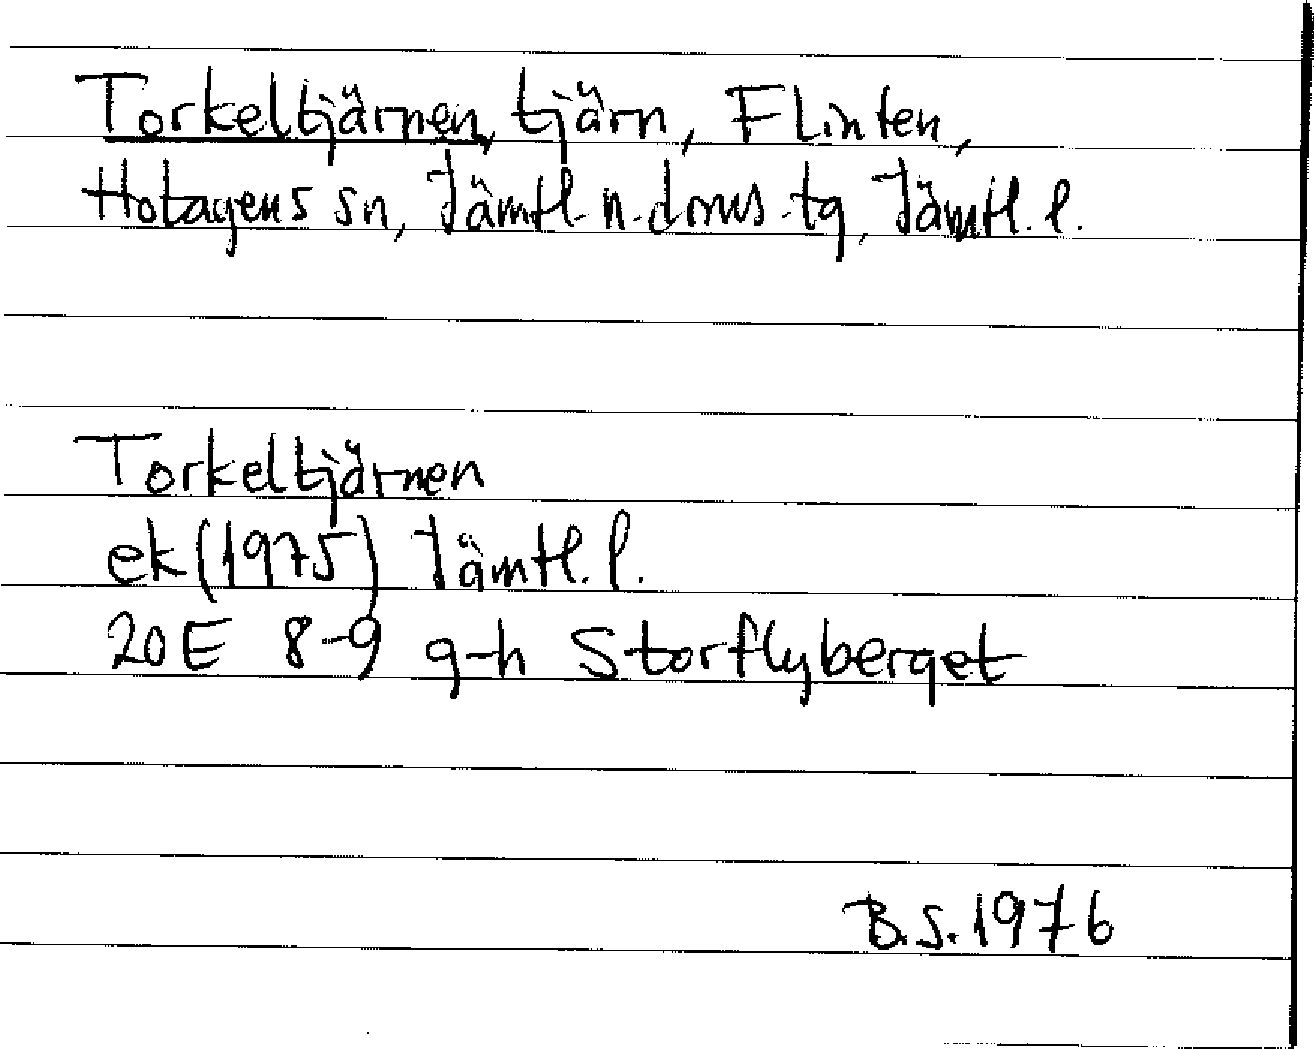 Torkeltjärnen, tjärn, Flinten,
Hotagens sn, Jämtl. n. dmns. tg, Jämtl. l.
Torkeltjärnen
ek (1975) Jämtl. l.
20E 8-9 g-h Storflyberget
B.S. 1976